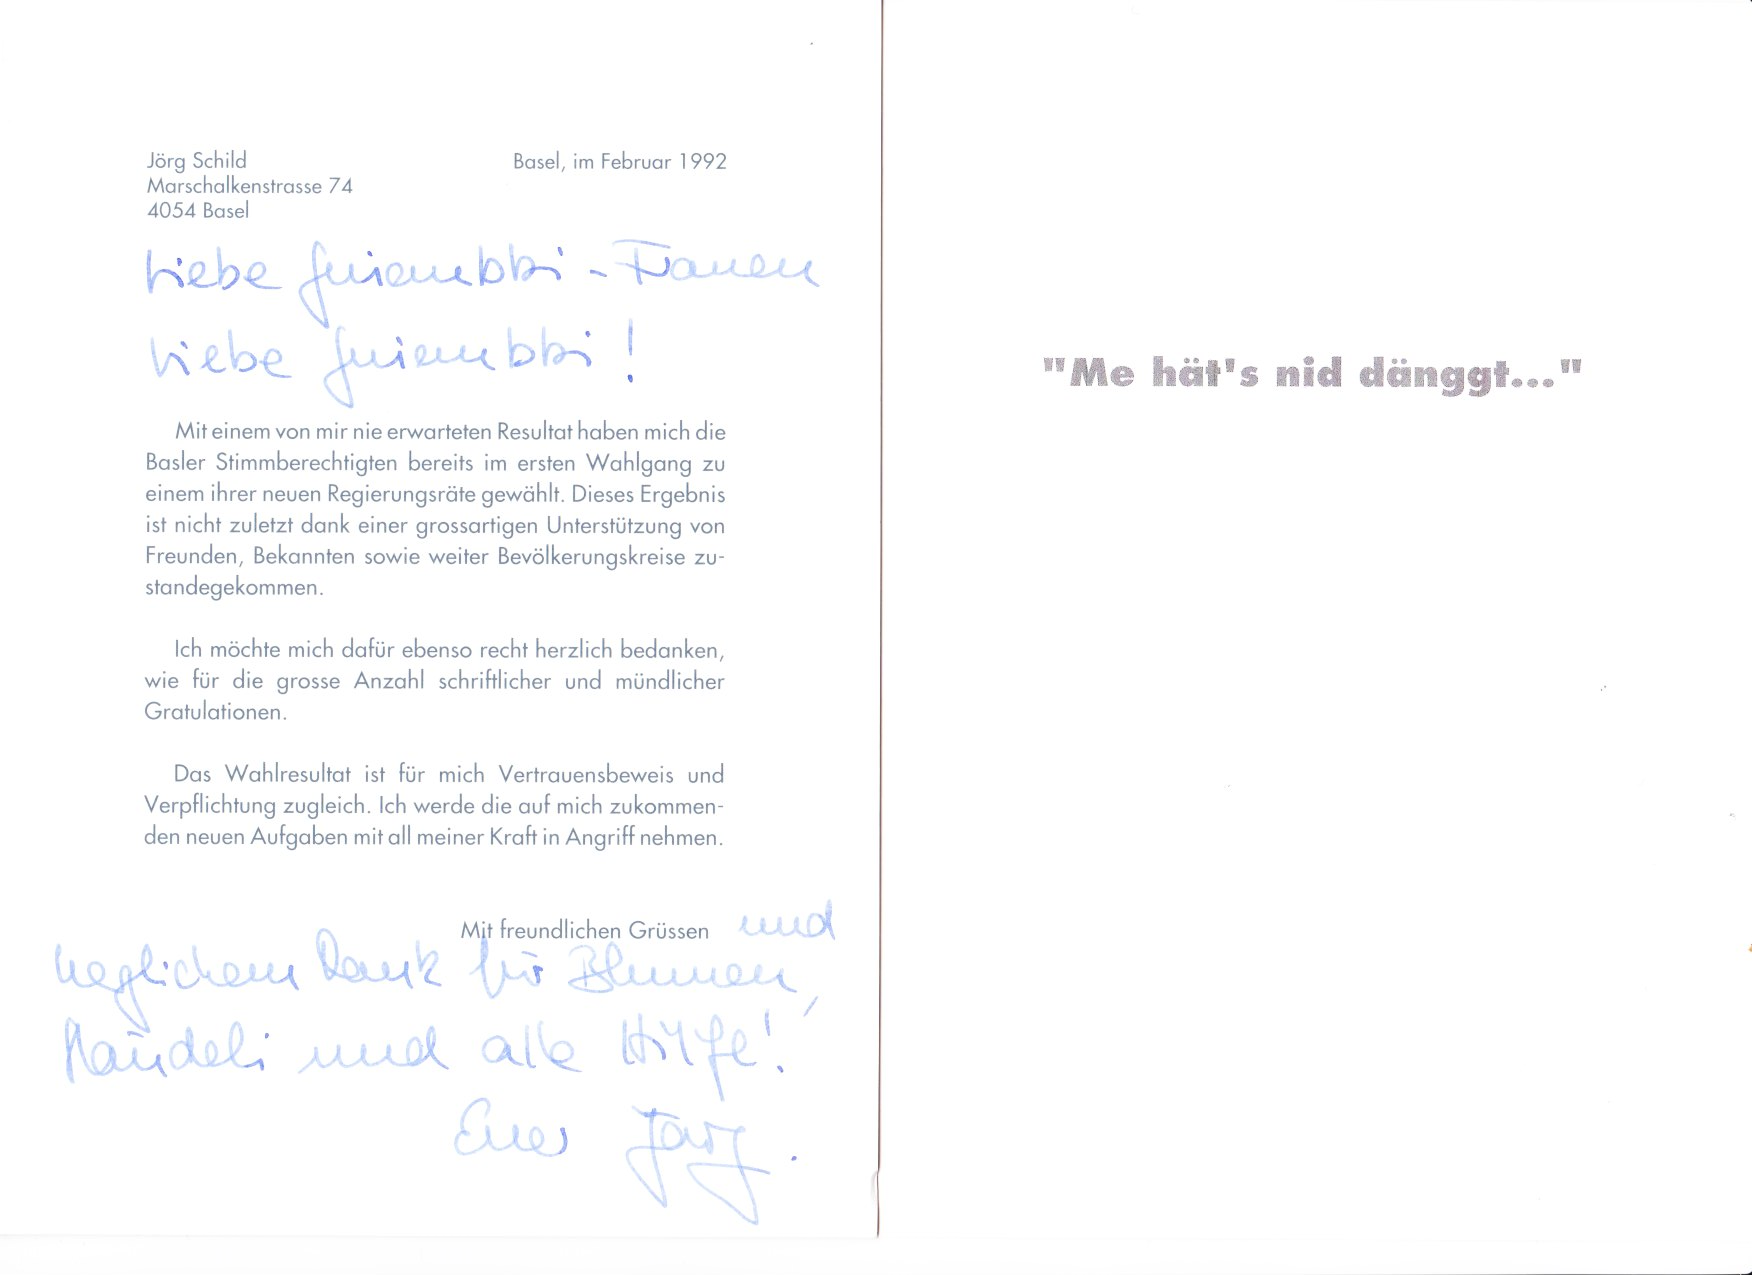 Jörg Schild
Basel, im Februar 1992
Marschalkenstrasse 74
4054 Basel
Liebe - Frauen
Liebe !
Mit einem von mir nie erwarteten Resultat haben mich die
Basler Stimmberechtigten bereits im ersten Wahlgang zu
einem ihrer neuen Regierungsräte gewählt. Dieses Ergebnis
ist nicht zuletzt dank einer grossartigen Unterstützung von
Freunden, Bekannten sowie weiter Bevölkerungskreise zu-
standegekommen.
Ich möchte mich dafür ebenso recht herzlich bedanken,
wie für die grosse Anzahl schriftlicher und mündlicher
Gratulationen.
Das Wahlresultat ist für mich Vertrauensbeweis und
Verpflichtung zugleich. Ich werde die auf mich zukommen-
den neuen Aufgaben mit all meiner Kraft in Angriff nehmen.
Mit freundlichen Grüssen und
herzlichem Dank für Blumen,
Ständeli und alle Hilfe!
Euer Jörg.
"Me hät's nid dänggt..."